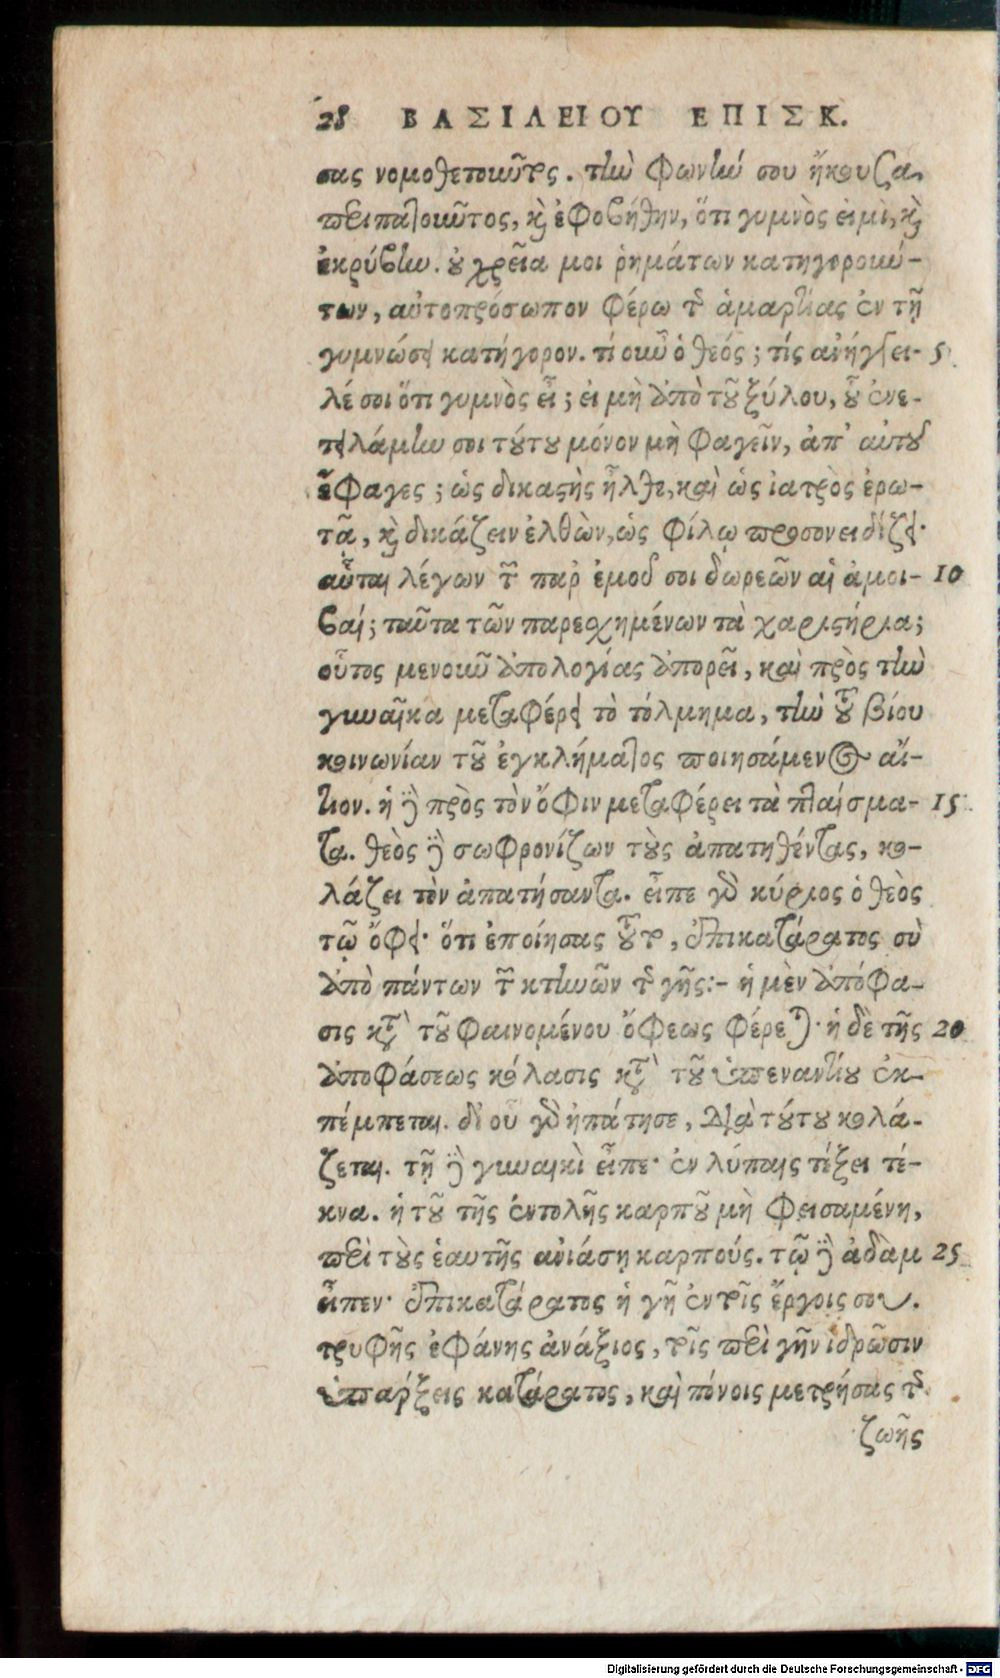 28 ΒΑΣΙΛΕΙΟΥ ΕΠΙΣΚ.
σας νομοθετοιῶτες. τὴν φωνήν σου ἤκουσα
περιπατοῦντος, καὶ ἐφοβήθην, ὅτι γυμνὸς εἰμὶ, καὶ
ἐκρύβην. οὐ χρεία μοι ῥημάτων κατηγορούν-
των, αὐτοπρόσωπον φέρω τῆς ἁμαρτίας ἐν τῇ
γυμνώσει κατήγορον. τί οὖν ὁ θεός; τίς ἀνήγγει- 5
λέ σοι ὅτι γυμνὸς εἶ; εἰ μὴ ἀπὸ τοῦ ξύλου, οὗ ἐνε-
τειλάμην σοι τούτου μόνον μὴ φαγεῖν, ἀπ' αὐτοῦ
ἔφαγες; ὡς δικαστὴς ἦλθε, καὶ ὡς ἰατρὸς ἐρω-
τᾷ, καὶ δικάζειν ἐλθὼν, ὡς φίλῳ προσονειδίζει·
αὗται λέγων τῶν παρ' ἐμοῦ σοι δωρεῶν αἱ ἀμοι- 10
βαί; ταῦτα τῶν παρεσχημένων τὰ χαριστήρια;
οὗτος μενοῦν ἀπολογίας ἀπορεῖ, καὶ πρὸς τὴν
γυναῖκα μεταφέρει τὸ τόλμημα, τὴν τοῦ βίου
κοινωνίαν τοῦ ἐγκλήματος ποιησάμενος αἴ-
τιον. ἡ δὲ πρὸς τὸν ὄφιν μεταφέρει τὰ πταίσμα- 15
τα. θεὸς δὲ σωφρονίζων τοὺς ἀπατηθέντας, κο-
λάζει τὸν ἀπατήσαντα. εἶπε γὰρ κύριος ὁ θεὸς
τῷ ὄφει· ὅτι ἐποίησας τοῦτο, ἐπικατάρατος σὺ
ἀπὸ πάντων τῶν κτηνῶν τῆς γῆς:- ἡ μὲν ἀπόφα-
σις κατὰ τοῦ φαινομένου ὄφεως φέρεται· ἡ δὲ τῆς 20
ἀποφάσεως κόλασις κατὰ τοῦ ὑπεναντίου ἐκ-
πέμπεται. δι' οὗ γὰρ ἠπάτησε, διὰ τούτου κολά-
ζεται. τῇ δὲ γυναικὶ εἶπε· ἐν λύπαις τέξει τέ-
κνα. ἡ τοῦ τῆς ἐντολῆς καρποῦ μὴ φεισαμένη,
περὶ τοὺς ἑαυτῆς ἀνιάσῃ καρπούς. τῷ δὲ ἀδὰμ 25
εἶπεν· ἐπικατάρατος ἡ γῆ ἐν τοῖς ἔργοις σου.
τρυφῆς ἐφάνης ἀνάξιος, τοῖς περὶ γῆν ἱδρῶσιν
ὑπάρξεις κατάρατος, καὶ πόνοις μετρήσας τῆς
ζωῆς
Digitalisierung gefördert durch die Deutsche Forschungsgemeinschaft - DFG